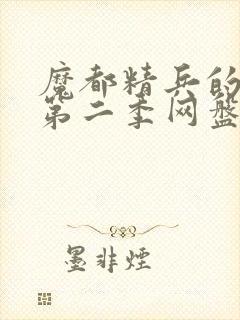 魔都精兵的
第二季网盘
墨非煙